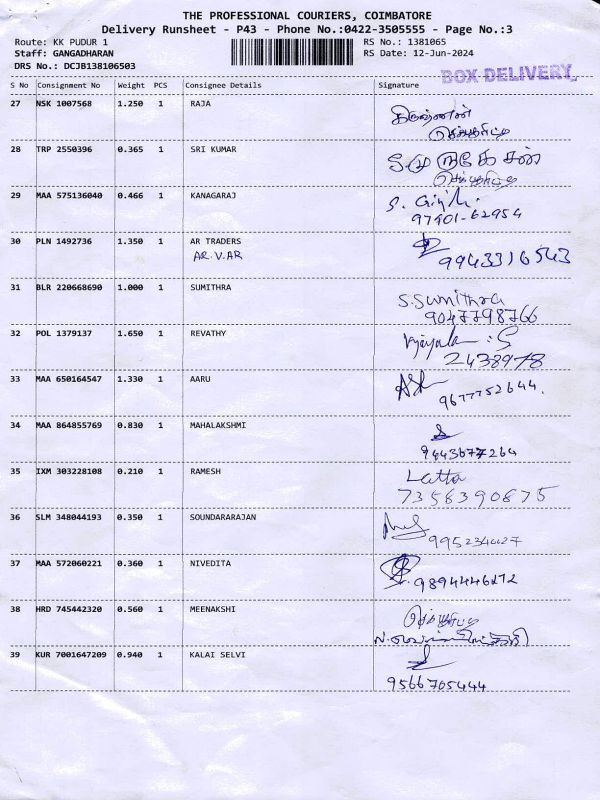 THE PROFESSIONAL COURIERS, COIMBATORE
Delivery Runsheet - P43 - Phone No.:0422-3505555 - Page No.:3
Route: KK PUDUR 1 RS No.: 1381065
Staff: GANGADHARAN RS Date: 12-Jun-2024
DRS No.: DCJB138106503
BOX DELIVERY
S No Consignment No Weight PCS Consignee Details Signature
27 NSK 1007568 1.250 1 RAJA
28 TRP 2550396 0.365 1 SRI KUMAR
29 MAA 575136040 0.466 1 KANAGARAJ
97901-62954
30 PLN 1492736 1.350 1 AR TRADERS
AR.V.AR 9943316543
31 BLR 220668690 1.000 1 SUMITHRA S.Sumithra
9047798766
32 POL 1379137 1.650 1 REVATHY
2438978
33 MAA 650164547 1.330 1 AARU
9677752644.
34 MAA 864855769 0.830 1 MAHALAKSHMI
9443677264
35 IXM 303228108 0.210 1 RAMESH Latta
7358390875
36 SLM 348044193 0.350 1 SOUNDARARAJAN
37 MAA 572060221 0.360 1 NIVEDITA
9894446272
38 HRD 745442320 0.560 1 MEENAKSHI
39 KUR 7001647209 0.940 1 KALAI SELVI
9566705444